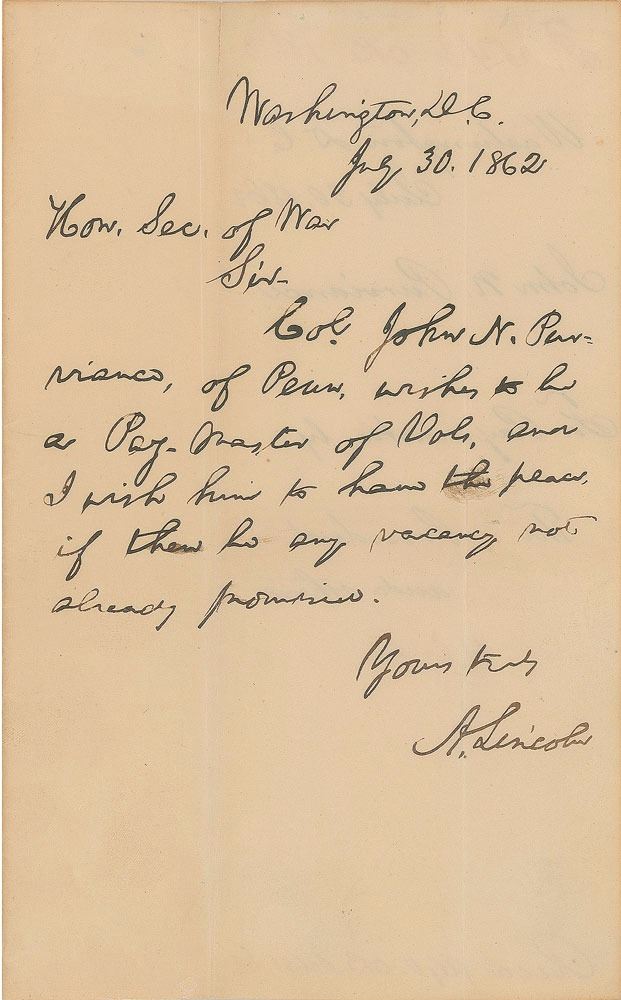 Washington, D.C.
July 30. 1862
Hon. Sec. of War
Sir-
Col. John N. Pur=
viance, of Penn, wishes to be
a Pay-Master of Vols, and
I wish him to have the peace,
if there be any vacancy not
already promised.
Yours truly
A. Lincoln